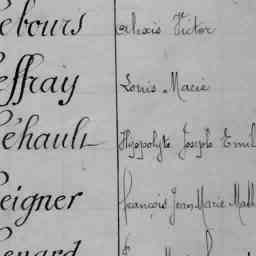 ebours Alexis Victor
effray Louis Marie
éhault Hyppolyte Joseph Emil
eigner François Jean Marie Math
enard